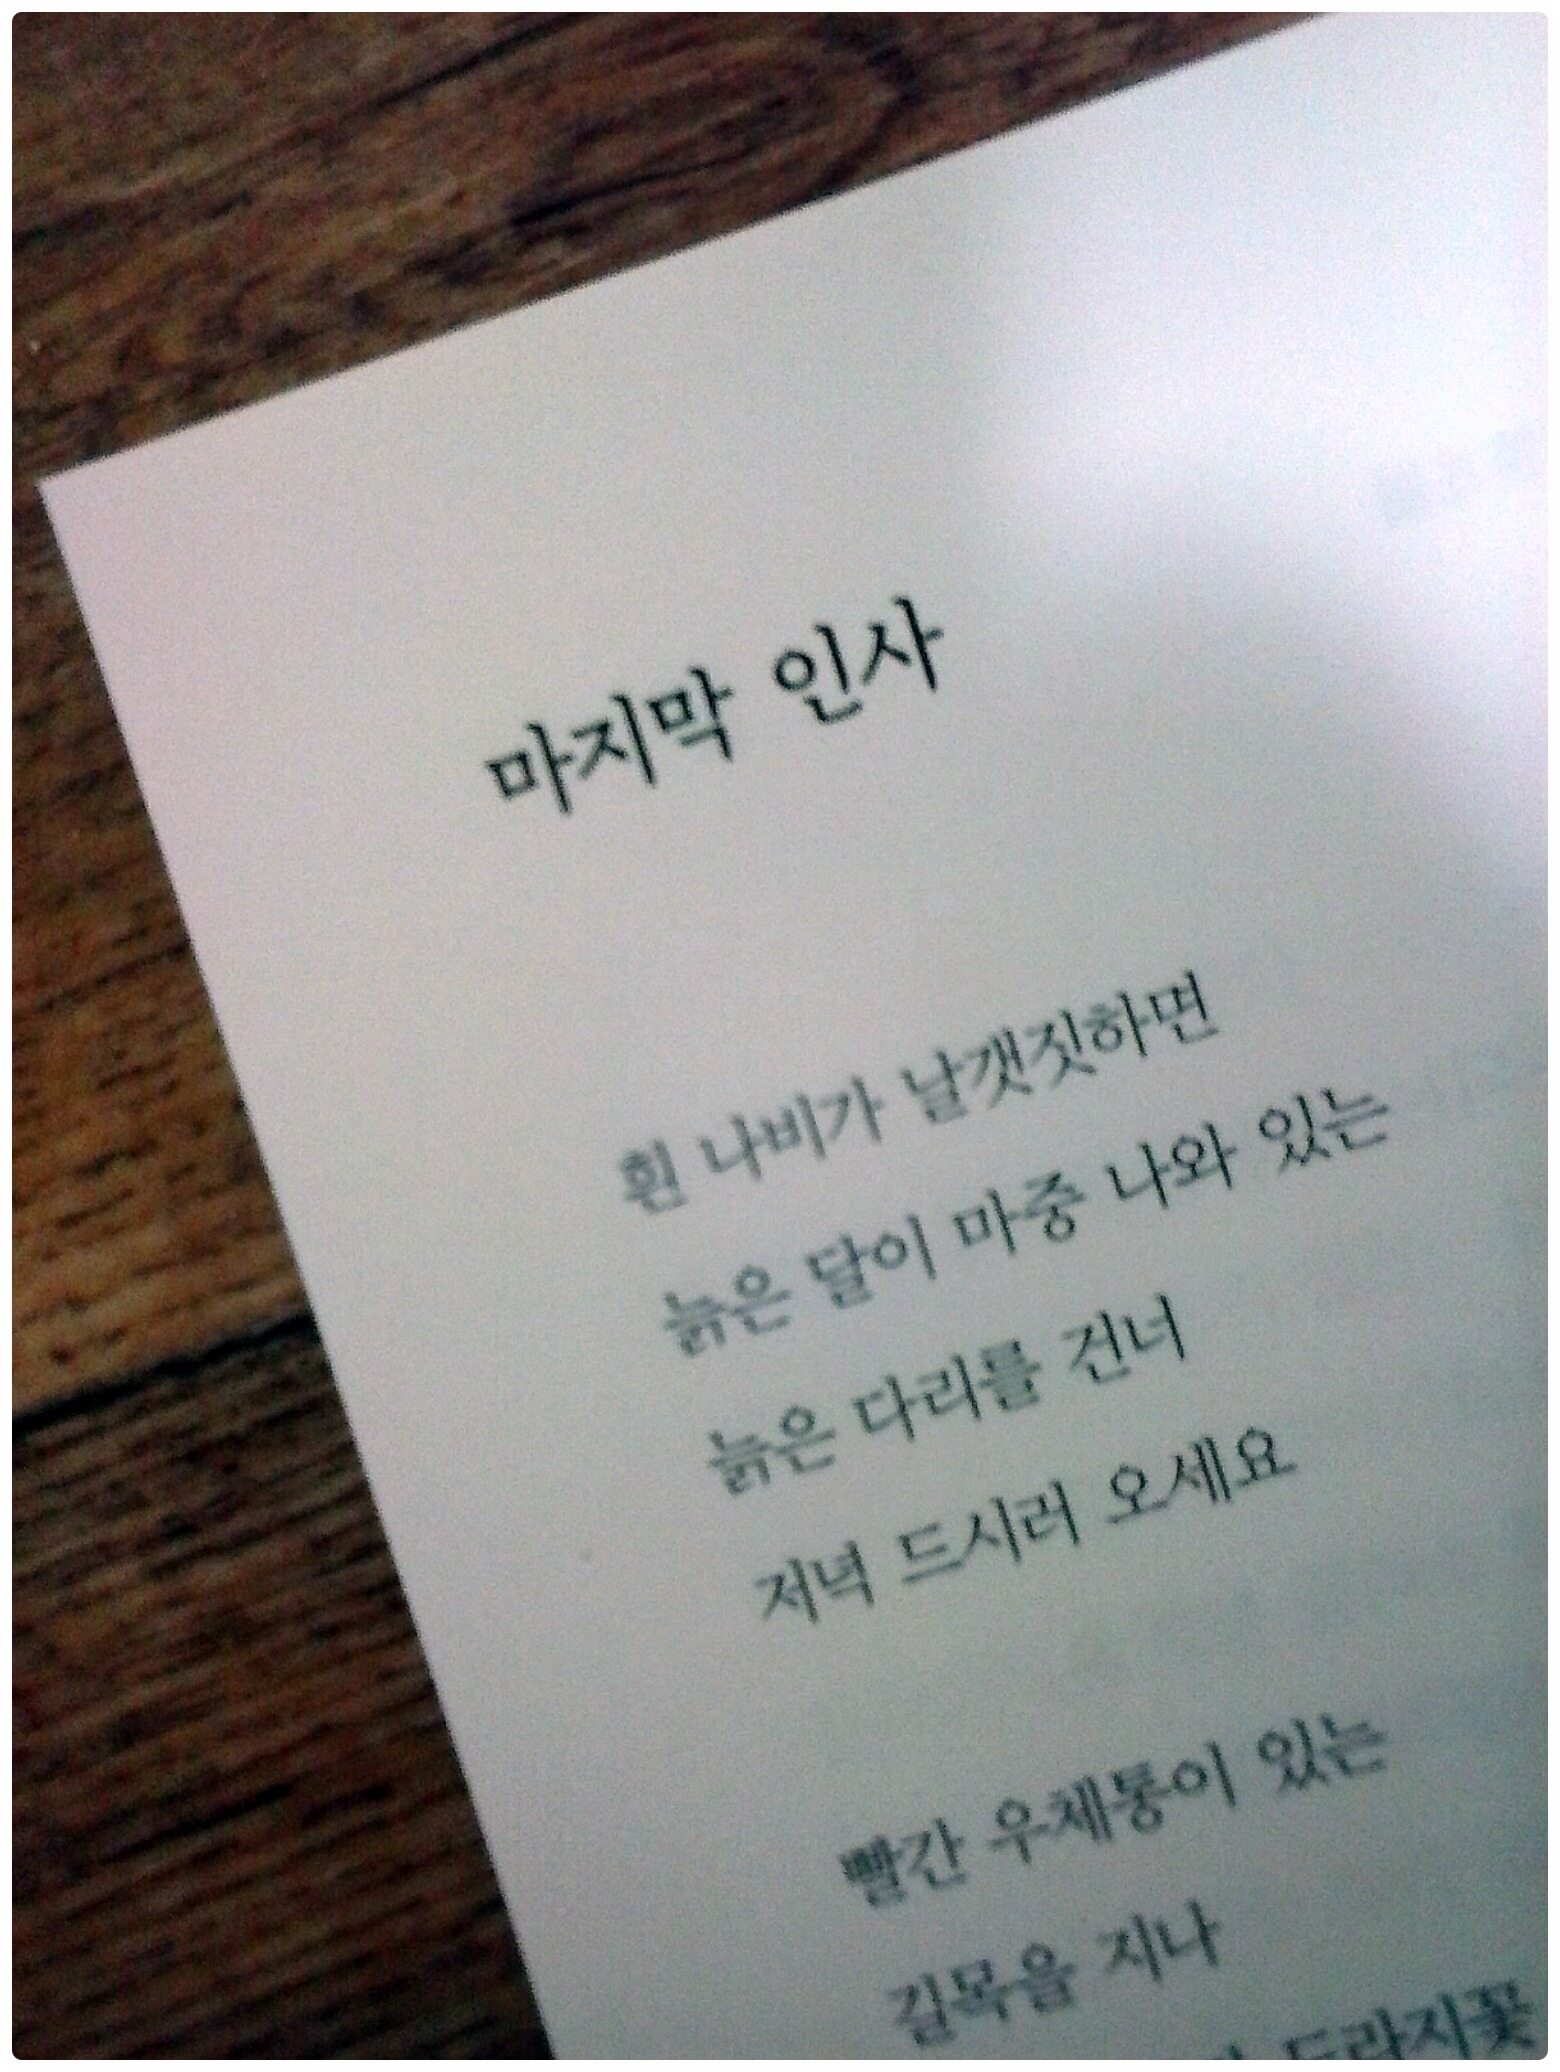 마지막 인사
흰 나비가 날갯짓하면
늙은 달이 마중 나와 있는
늙은 다리를 건너
저녁 드시러 오세요
빨간 우체통이 있는
길목을 지나
도라지꽃